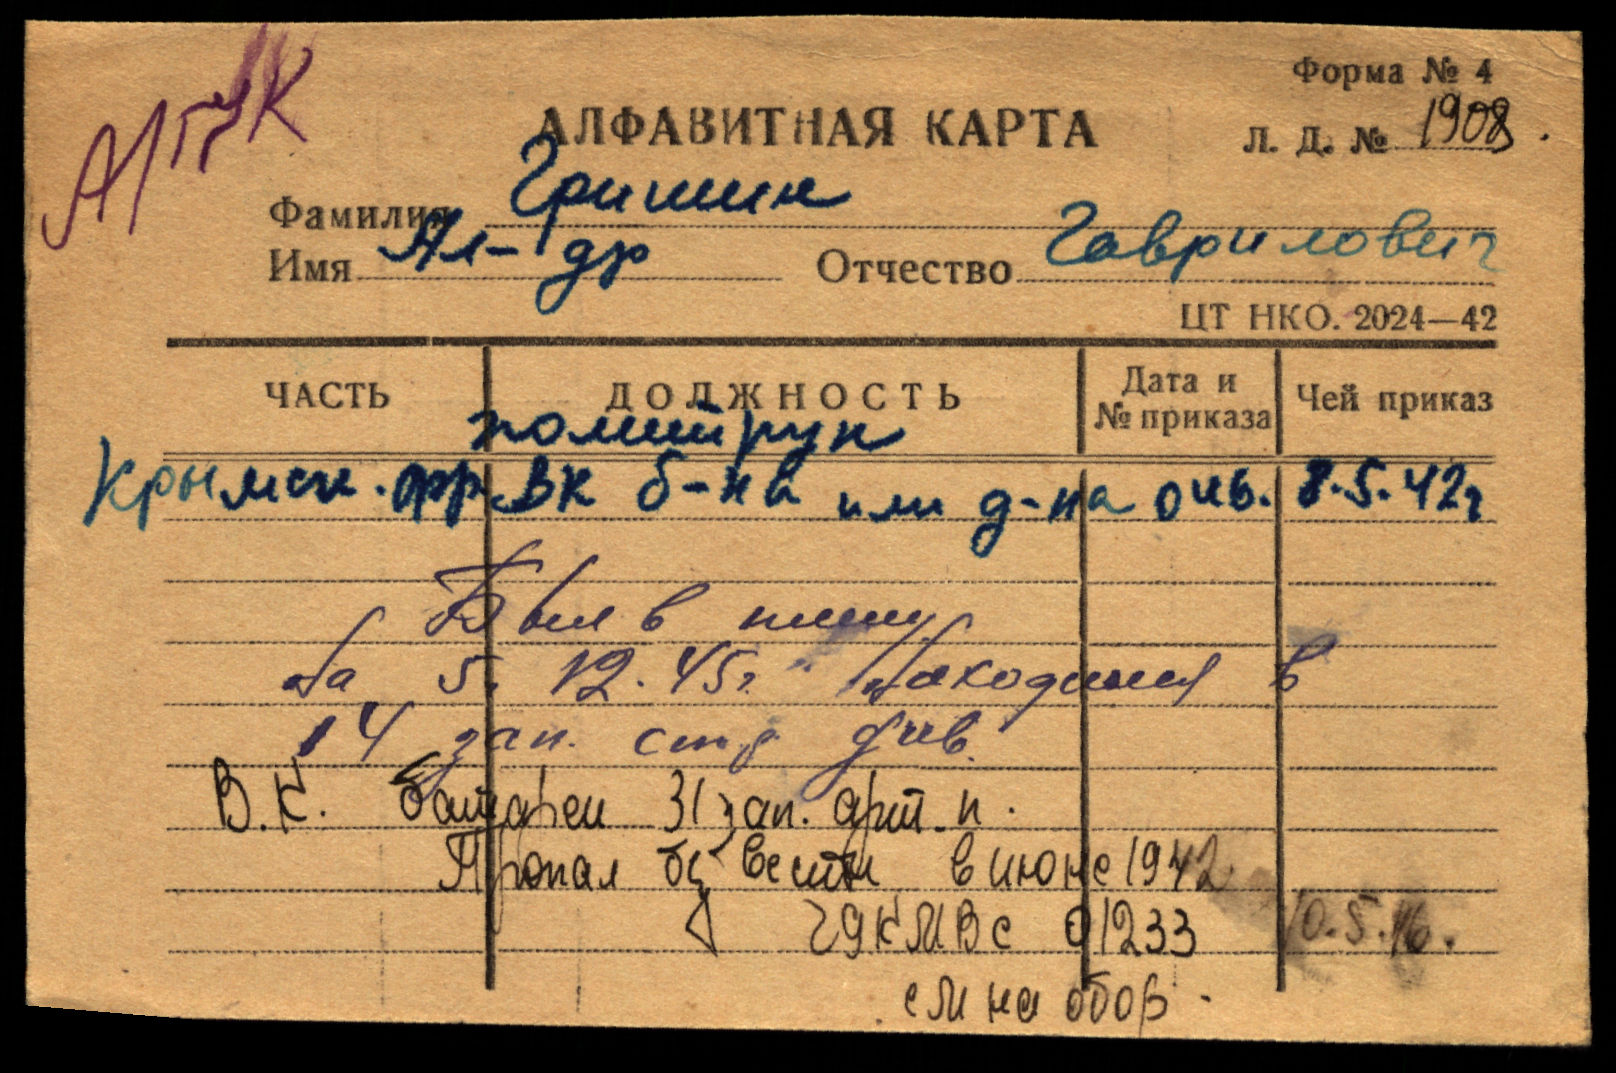 Форма № 4
АЛФАВИТНАЯ КАРТА
Л. Д. № 1908.
Фамилия Гришин
Имя Ал-др Отчество Гаврилович
ЦТ НКО. 2024—42
ЧАСТЬ ДОЛЖНОСТЬ Дата и № приказа Чей приказ
политрук
Крымск. фр. ВК б-на или д-на 8.5.42г
Был в плену
На 5. 12. 45г. находился в
14 зап. стр. див.
В.К. батареи 31 зап. арт. п.
Пропал без вести в июне 1942
ГУК МВС 01233 10.5.46.
см на обор.